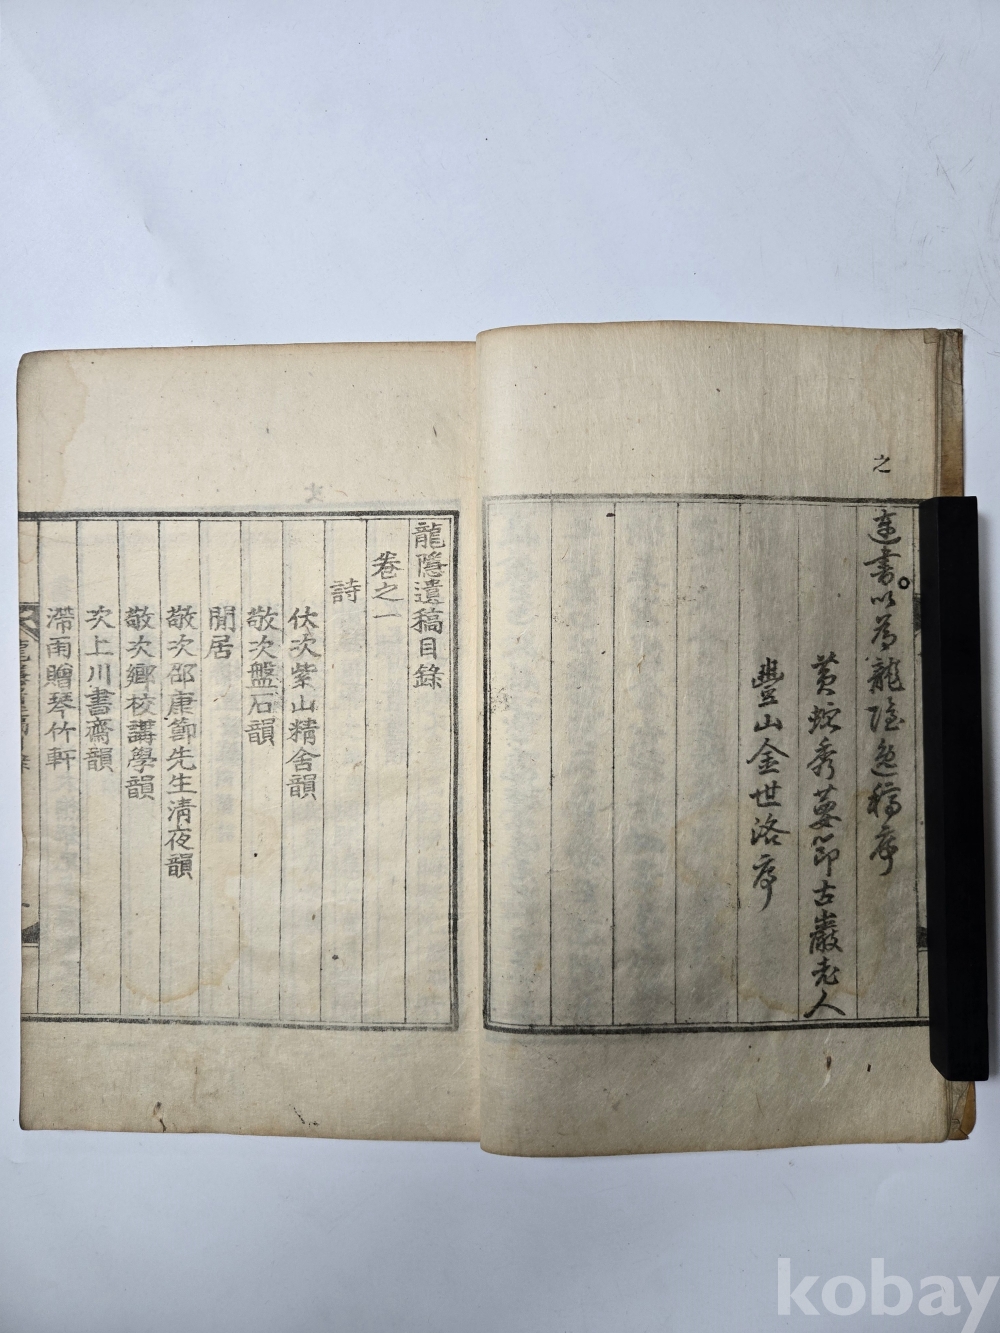 之
書以爲龍隱遺稿序
黃蛇秀葽節古巖老人
豐山金世洛序
龍隱遺稿目錄
卷之一
詩
伏次紫山精舍韻
敬次盤石韻
閒居
敬次邵康節先生淸夜韻
敬次鄕校講學韻
次上川書齋韻
滯雨贈琴竹軒
kobay